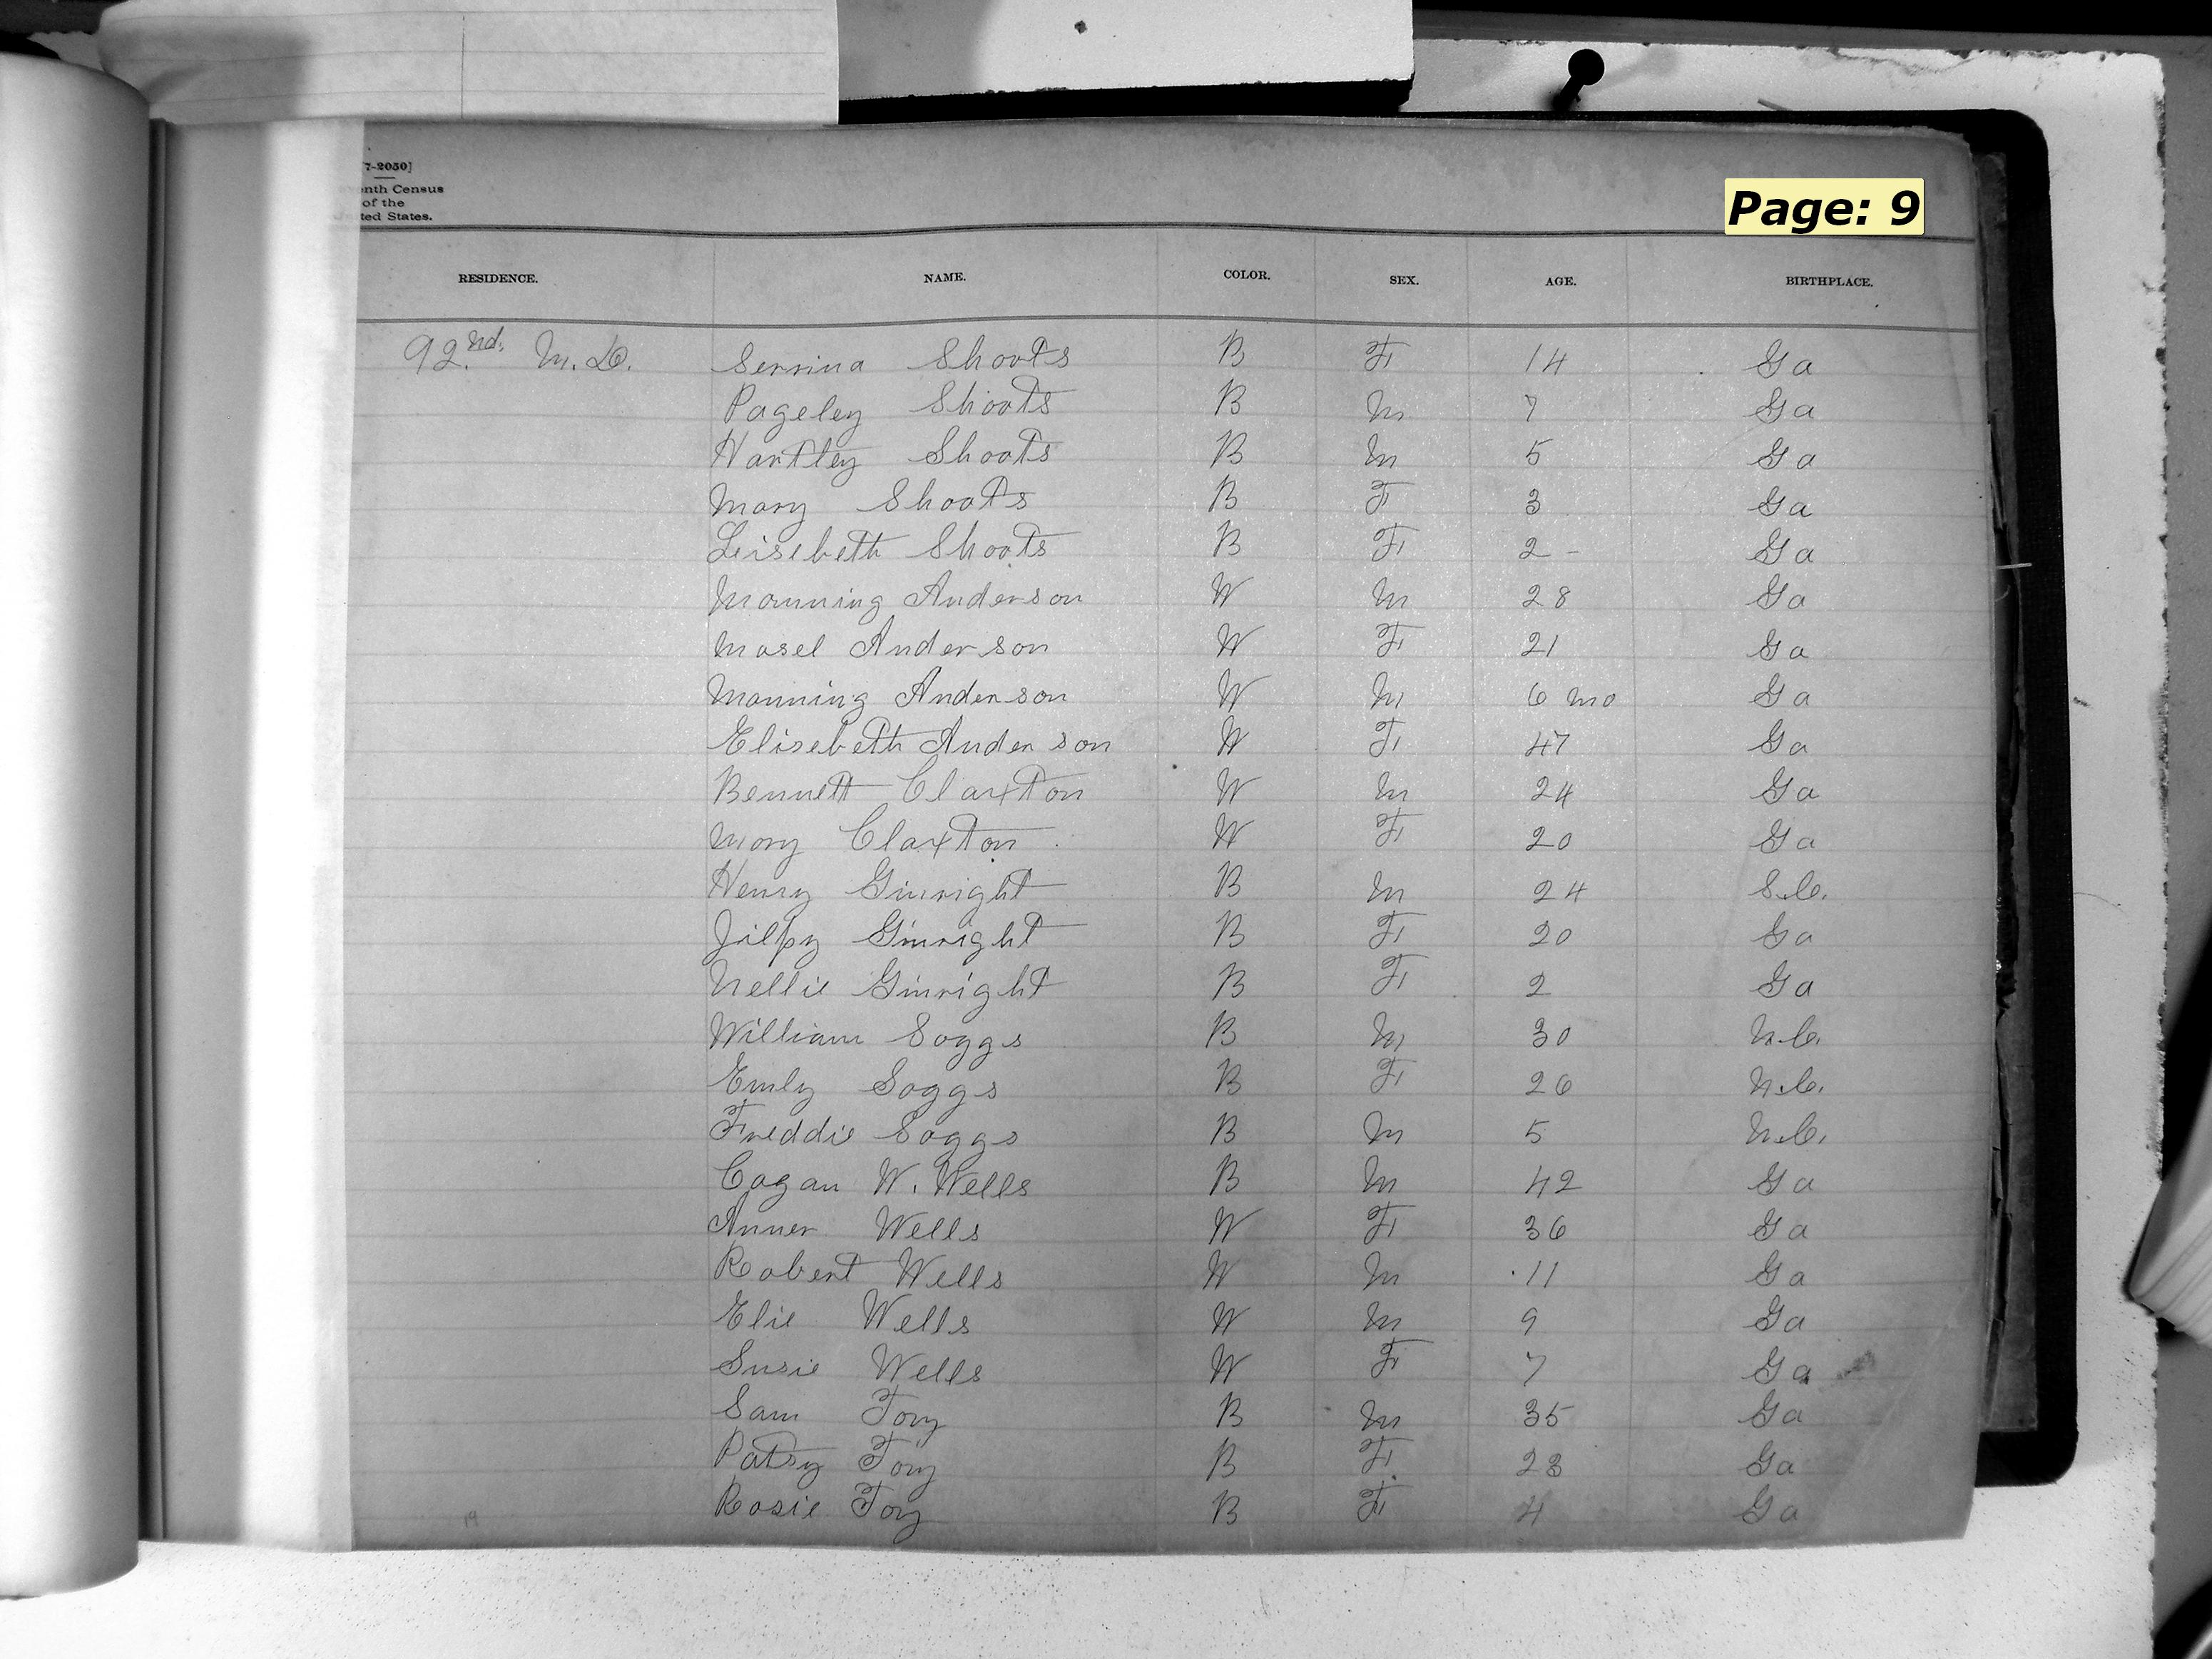 7-2050]
enth Census
of the
ited States.
Page: 9
RESIDENCE. NAME. COLOR. SEX. AGE. BIRTHPLACE.
92nd. M. D. Serrina Shoots B F 14 Ga
Pageley Shoots B M 7 Ga
Hartley Shoots B M 5 Ga
Mary Shoots B F 3 Ga
Leisebeth Shoots B F 2 - Ga
Manning Anderson W M 28 Ga
Masel Anderson W F 21 Ga
Manning Anderson W M 6 mo Ga
Elisebeth Anderson W F 47 Ga
Bennett Claxton W M 24 Ga
Mary Claxton W F 20 Ga
Henry Ginright B M 24 S.C.
Jilpy Ginright B F 20 Ga
Nellie Ginright B F 2 Ga
William Soggs B M 30 N.C.
Emly Soggs B F 26 N.C.
Freddie Soggs B M 5 N.C.
Cagan W. Wells B M 42 Ga
Anner Wells W F 36 Ga
Robert Wells W M 11 Ga
Elie Wells W M 9 Ga
Susie Wells W F 7 Ga
Sam Foy B M 35 Ga
Patsy Foy B F 23 Ga
Rosie Foy B F 4 Ga
19